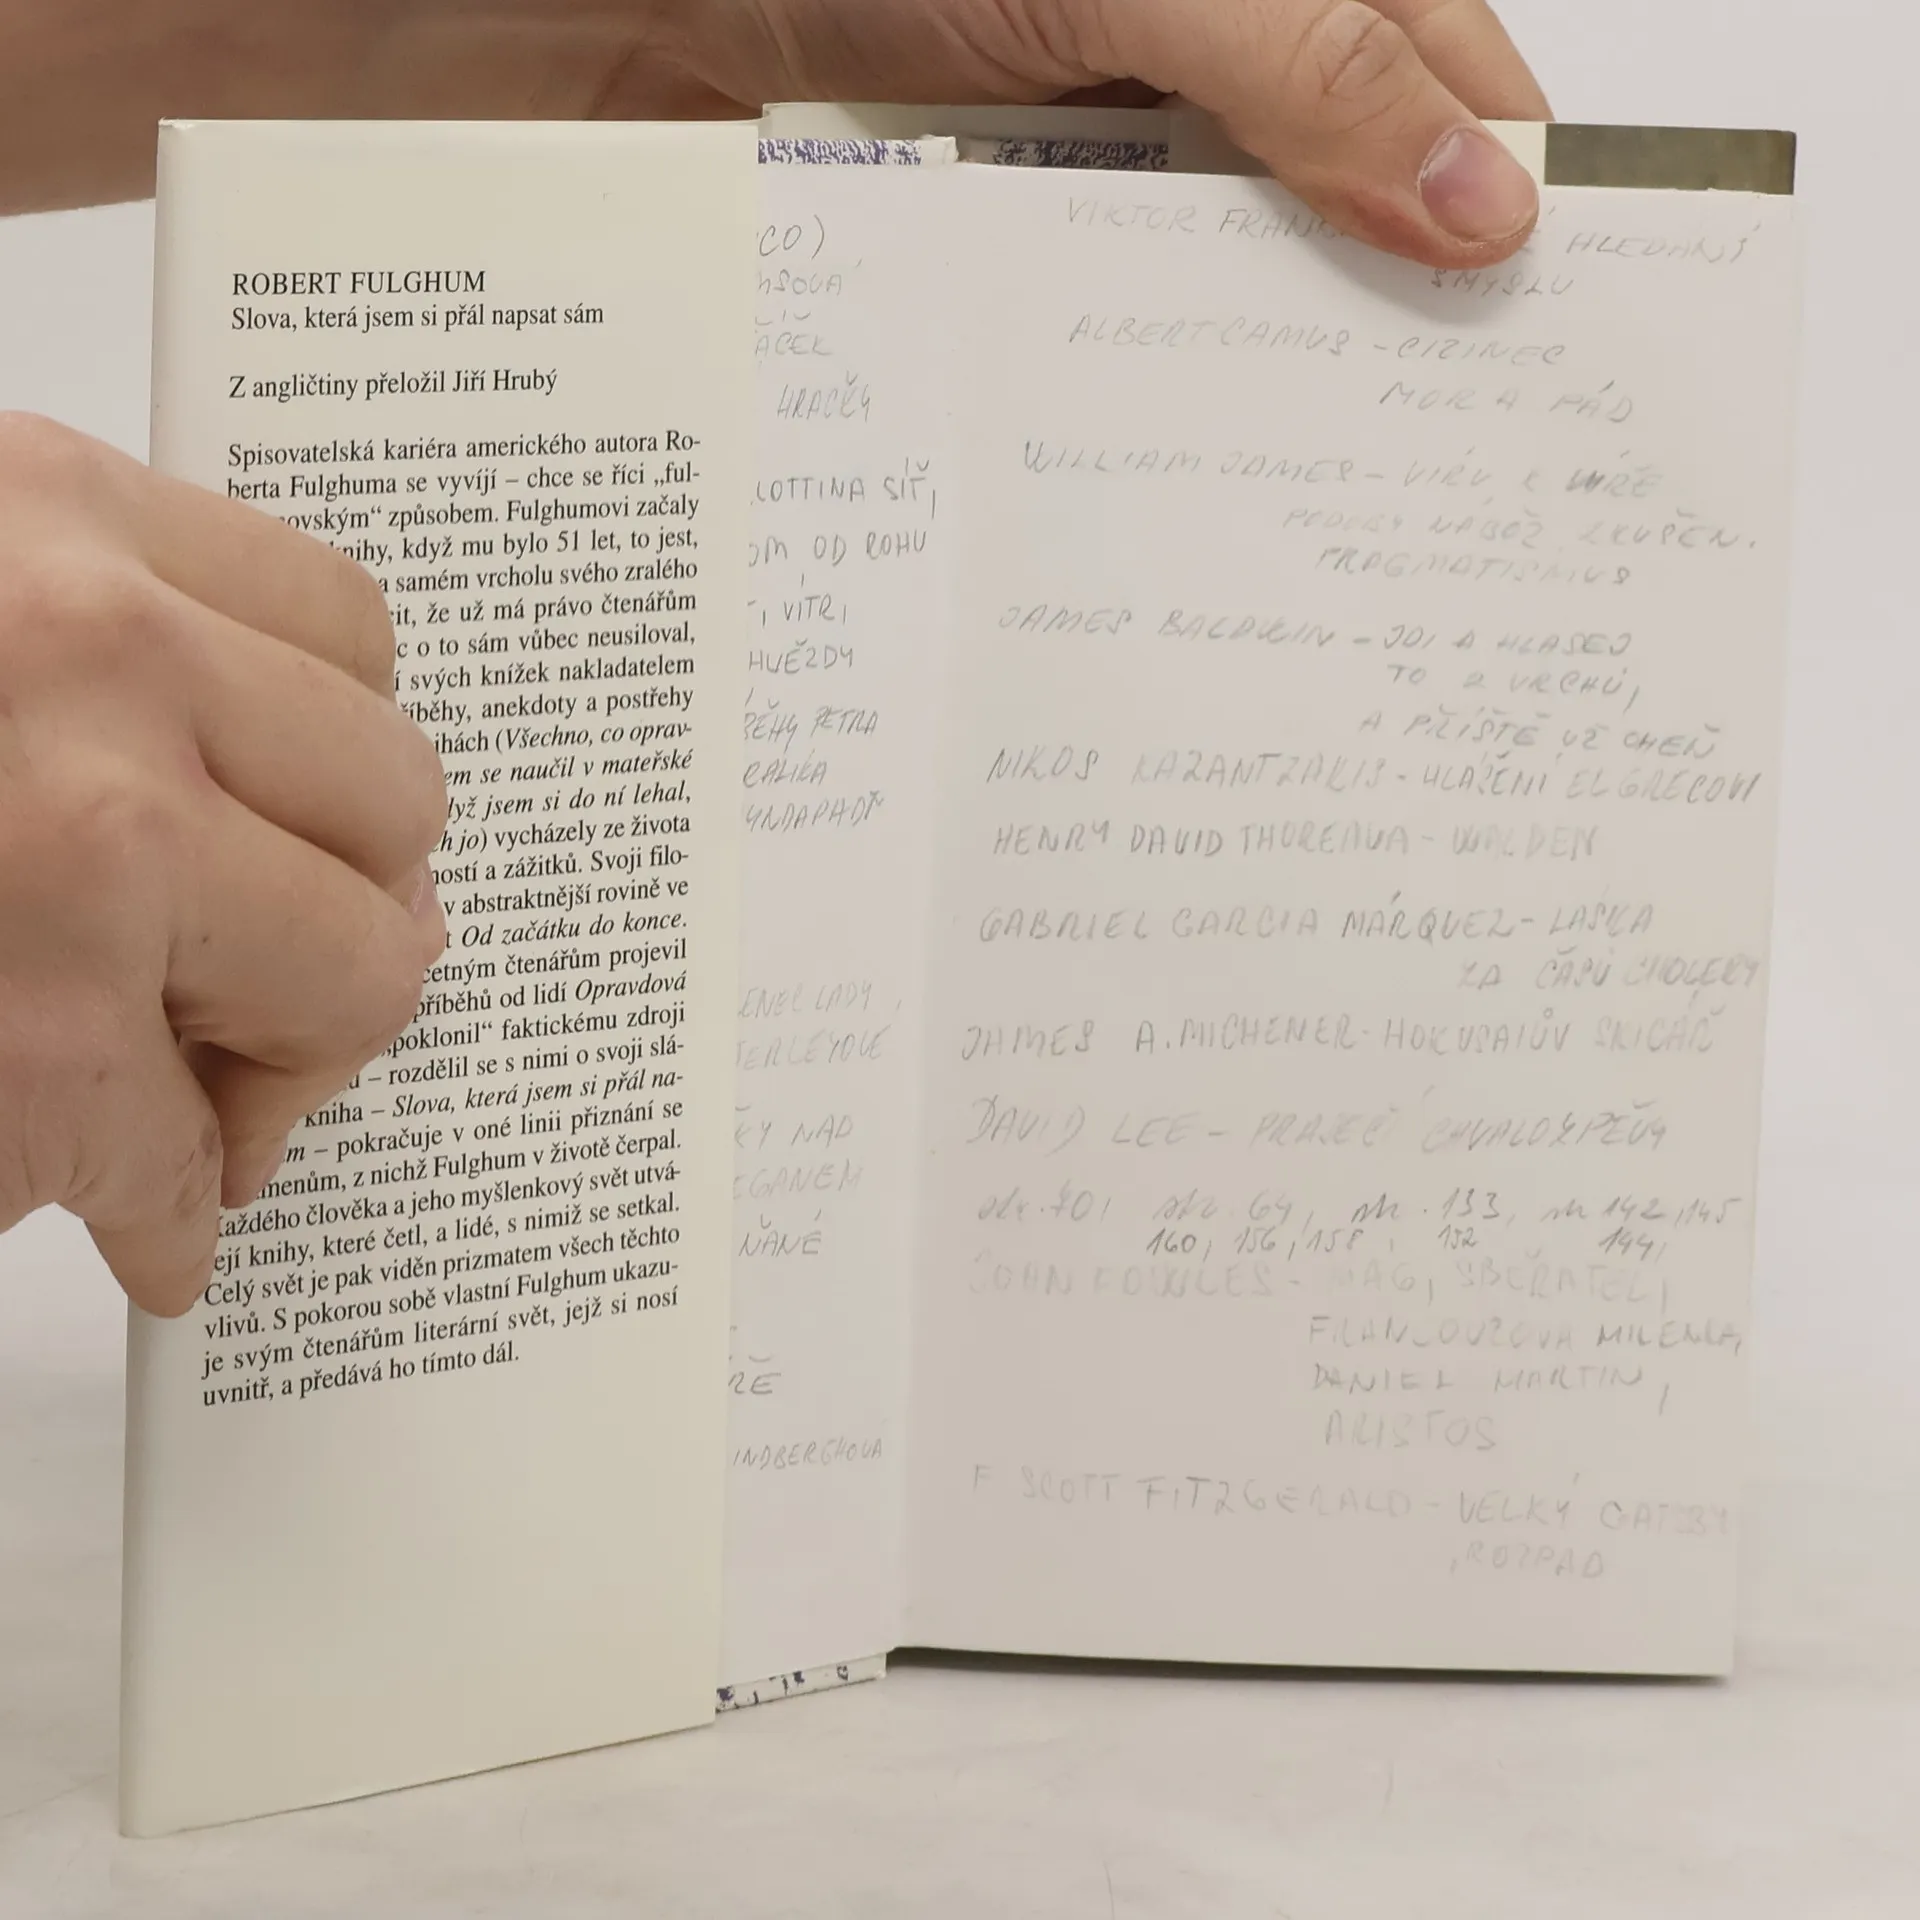 ROBERT FULGHUM
Slova, která jsem si přál napsat sám
Z angličtiny přeložil Jiří Hrubý
Spisovatelská kariéra amerického autora Ro-
berta Fulghuma se vyvíjí – chce se říci „ful-
ovským“ způsobem. Fulghumovi začaly
knihy, když mu bylo 51 let, to jest,
a samém vrcholu svého zralého
cit, že už má právo čtenářům
c o to sám vůbec neusiloval,
í svých knížek nakladatelem
říběhy, anekdoty a postřehy
ihách (Všechno, co oprav-
em se naučil v mateřské
dyž jsem si do ní lehal,
ch jo) vycházely ze života
ností a zážitků. Svoji filo-
v abstraktnější rovině ve
t Od začátku do konce.
četným čtenářům projevil
příběhů od lidí Opravdová
„poklonil“ faktickému zdroji
u – rozdělil se s nimi o svoji slá-
kniha – Slova, která jsem si přál na-
m – pokračuje v oné linii přiznání se
menům, z nichž Fulghum v životě čerpal.
Každého člověka a jeho myšlenkový svět utvá-
ejí knihy, které četl, a lidé, s nimiž se setkal.
Celý svět je pak viděn prizmatem všech těchto
vlivů. S pokorou sobě vlastní Fulghum ukazu-
je svým čtenářům literární svět, jejž si nosí
uvnitř, a předává ho tímto dál.
CO)
MSOVÁ
ÁČEK
HRAČKY
LOTTINA SÍŤ,
OM OD ROHU
, VÍTR,
HVĚZDY
BĚHY PETRA
RALÍKA
ENEC LADY
TERLEYOVÉ
KY NAD
EGANEM
NANÉ
ŘE
INDBERGHOVÁ
VIKTOR FRANK
HLEDÁNÍ
SMYSLU
ALBERT CAMUS - CIZINEC
MOR A PÁD
WILLIAM JAMES - VŮLI K VÍŘE
PODOBY NÁBOŽ. ZKUŠEN.
PRAGMATISMUS
JAMES BALDWIN - JDI A HLÁSEJ
TO Z VRCHŮ,
A PŘÍŠTĚ UŽ OHEŇ
NIKOS KAZANTZAKIS - HLÁŠENÍ EL GRECOVI
HENRY DAVID THOREAUA - WALDEN
GABRIEL GARCIA MÁRQUEZ - LÁSKA
ZA ČASŮ CHOLERY
JAMES A. MICHENER - HOKUSAIŮV SKICÁŘ
DAVID LEE - PRASEČÍ CHVALOZPĚVY
str. 70, str. 64, str. 133, str. 142, 145
160, 156, 158, 152 144,
JOHN FOWLES - MÁG, SBĚRATEL,
FRANCOUZOVA MILENKA,
DANIEL MARTIN,
ARISTOS
F SCOTT FITZGERALD - VELKÝ GATSBY
, ROZPAD